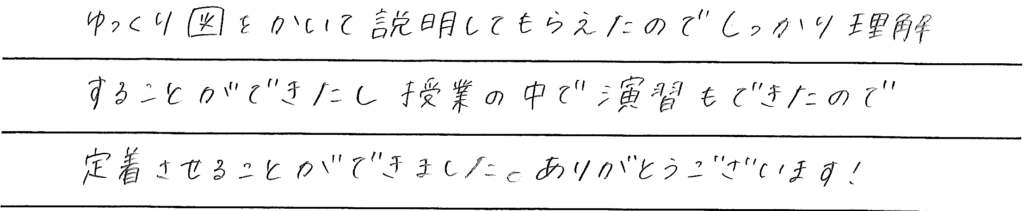 ゆっくり図をかいて説明してもらえたのでしっかり理解
することができたし授業の中で演習もできたので
定着させることができました。ありがとうございます!